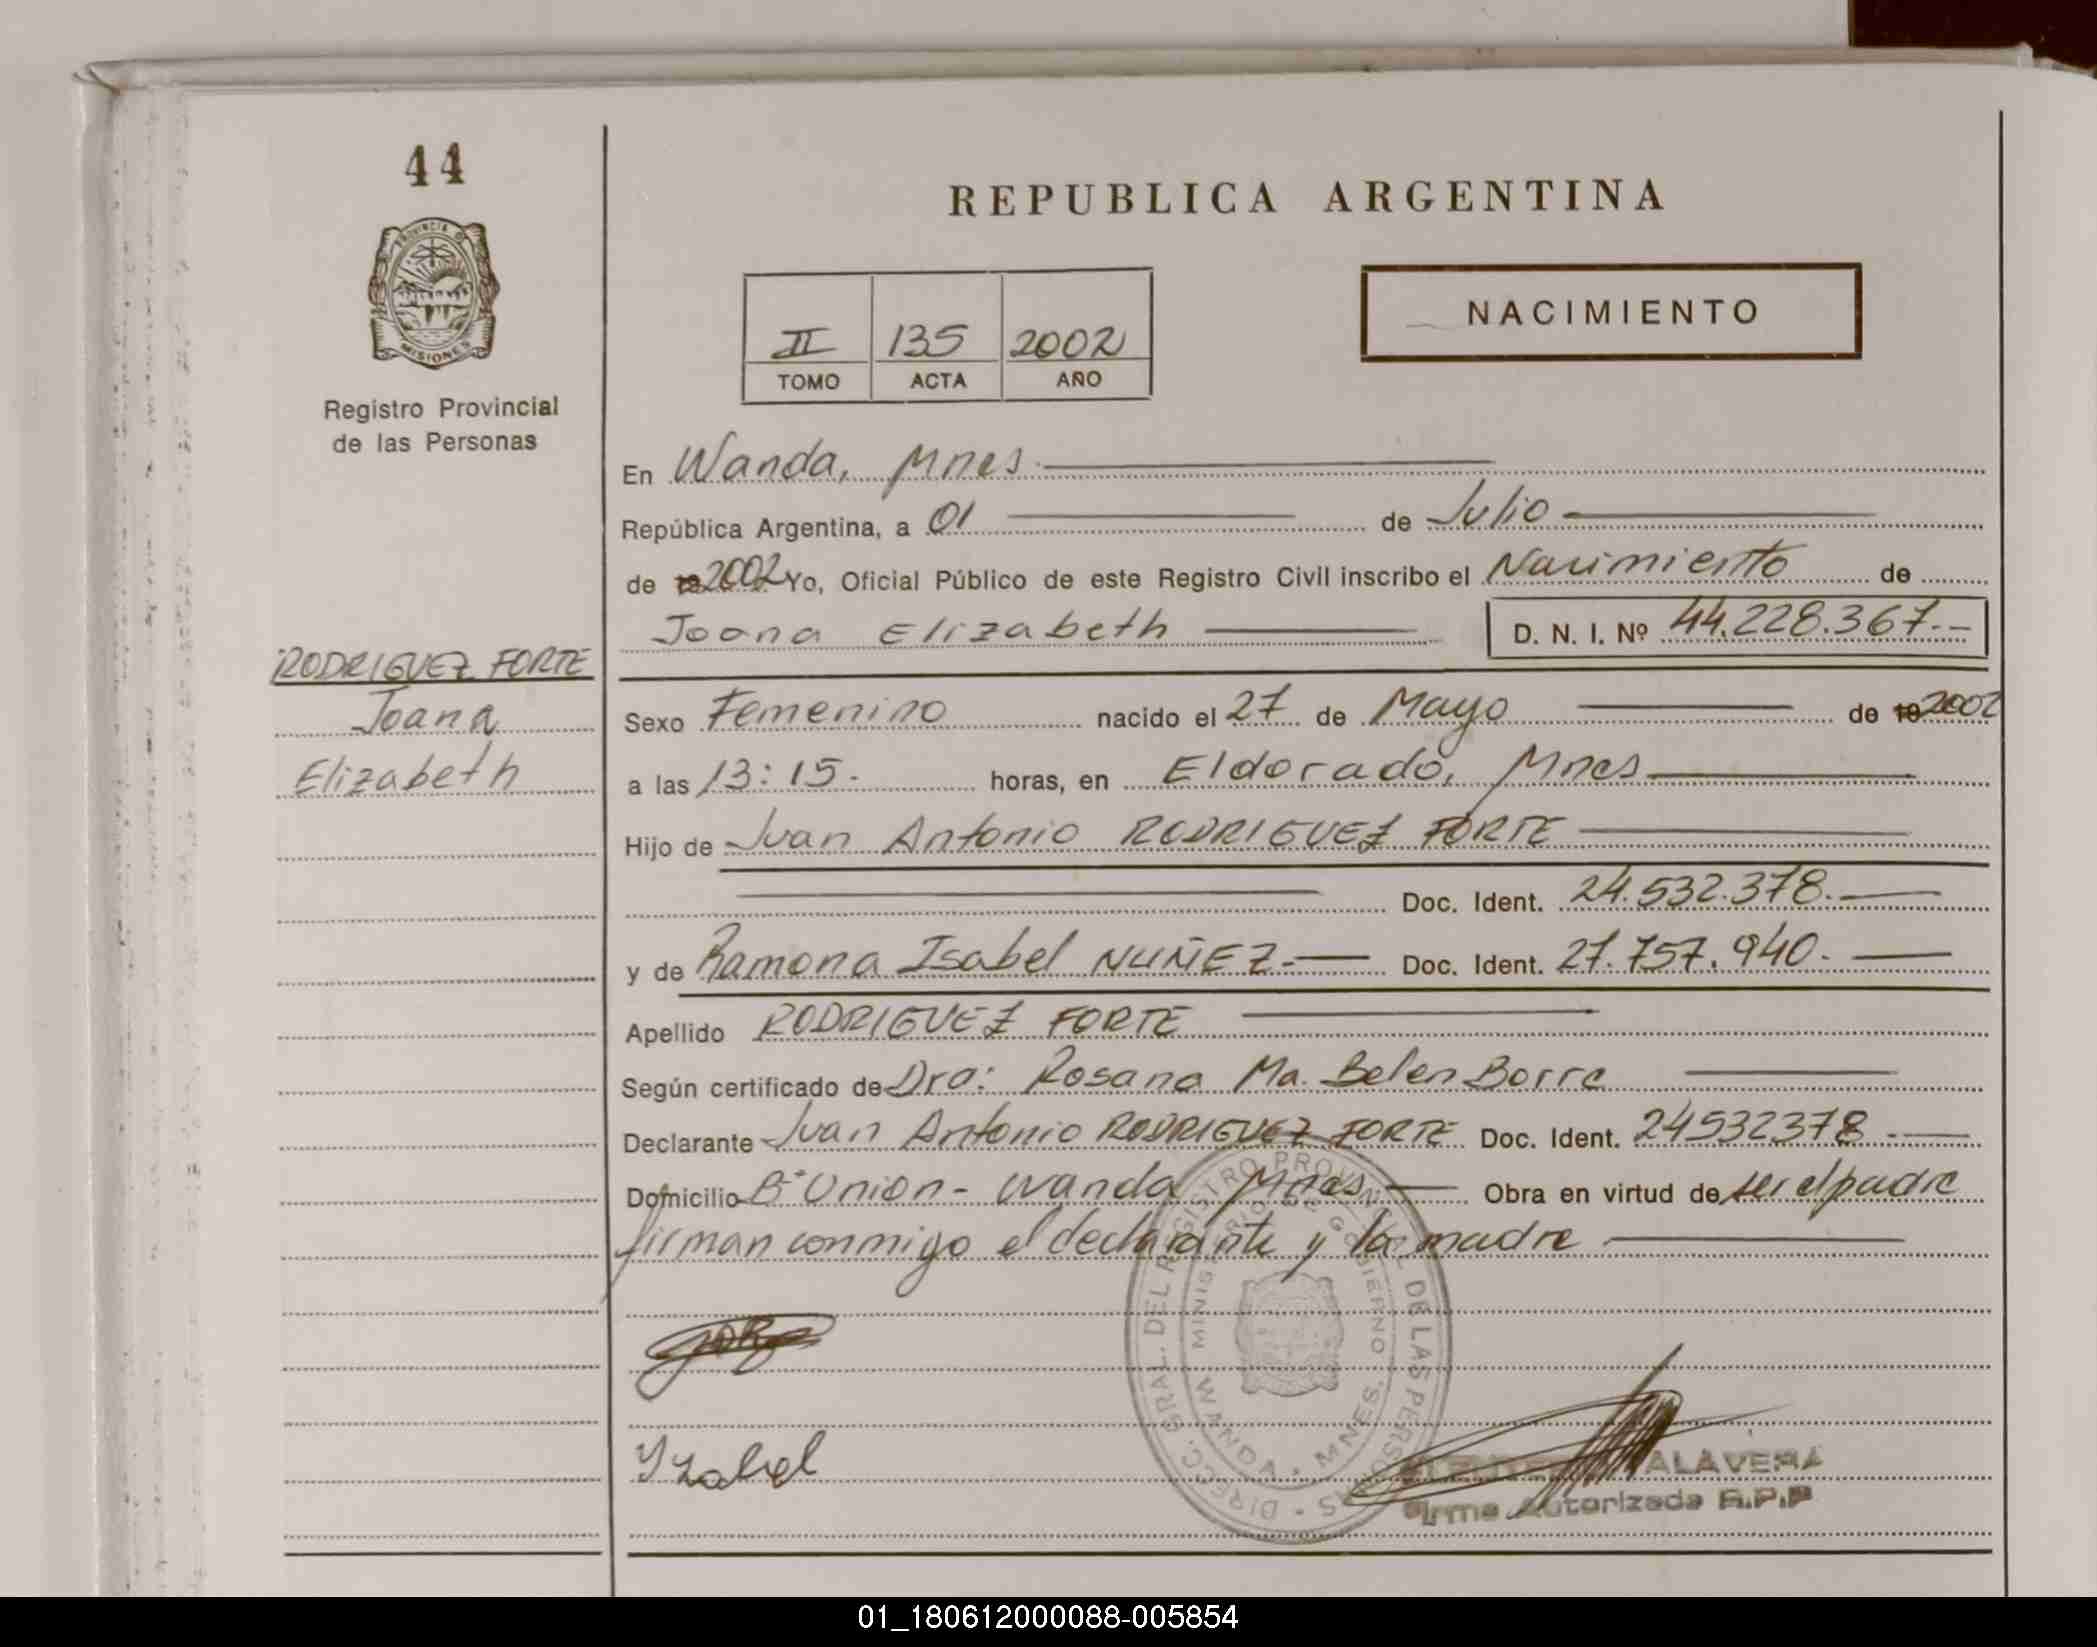 44
PROVINCIA DE
MISIONES
Registro Provincial
de las Personas
RODRIGUEZ FORTE
Joana
Elizabeth
REPUBLICA ARGENTINA
II 135 2002
TOMO ACTA AÑO
NACIMIENTO
En Wanda, Mnes.
República Argentina, a 01 de Julio
de 19 2002 Yo, Oficial Público de este Registro Civil inscribo el Nacimiento de
Joana Elizabeth D. N. I. Nº 44.228.367.-
Sexo Femenino nacido el 27 de Mayo de 19 2002
a las 13:15. horas, en Eldorado, Mnes
Hijo de Juan Antonio RODRIGUEZ FORTE
Doc. Ident. 24.532.378.
y de Ramona Isabel NUÑEZ.- Doc. Ident. 27.757.940.
Apellido RODRIGUEZ FORTE
Según certificado de Dra: Rosana Ma. Belen Borre
Declarante Juan Antonio RODRIGUEZ FORTE Doc. Ident. 24532378
Domicilio Bº Union - Wanda Mnes Obra en virtud de ser el padre
firman conmigo el declarante y la madre
DIRECC. GRAL. DEL REGISTRO PROVINCIAL DE LAS PERSONAS
MINISTERIO DE GOBIERNO
WANDA - MNES.
Yzabel
ALAVERA
Firma Autorizada R.P.P
01_180612000088-005854